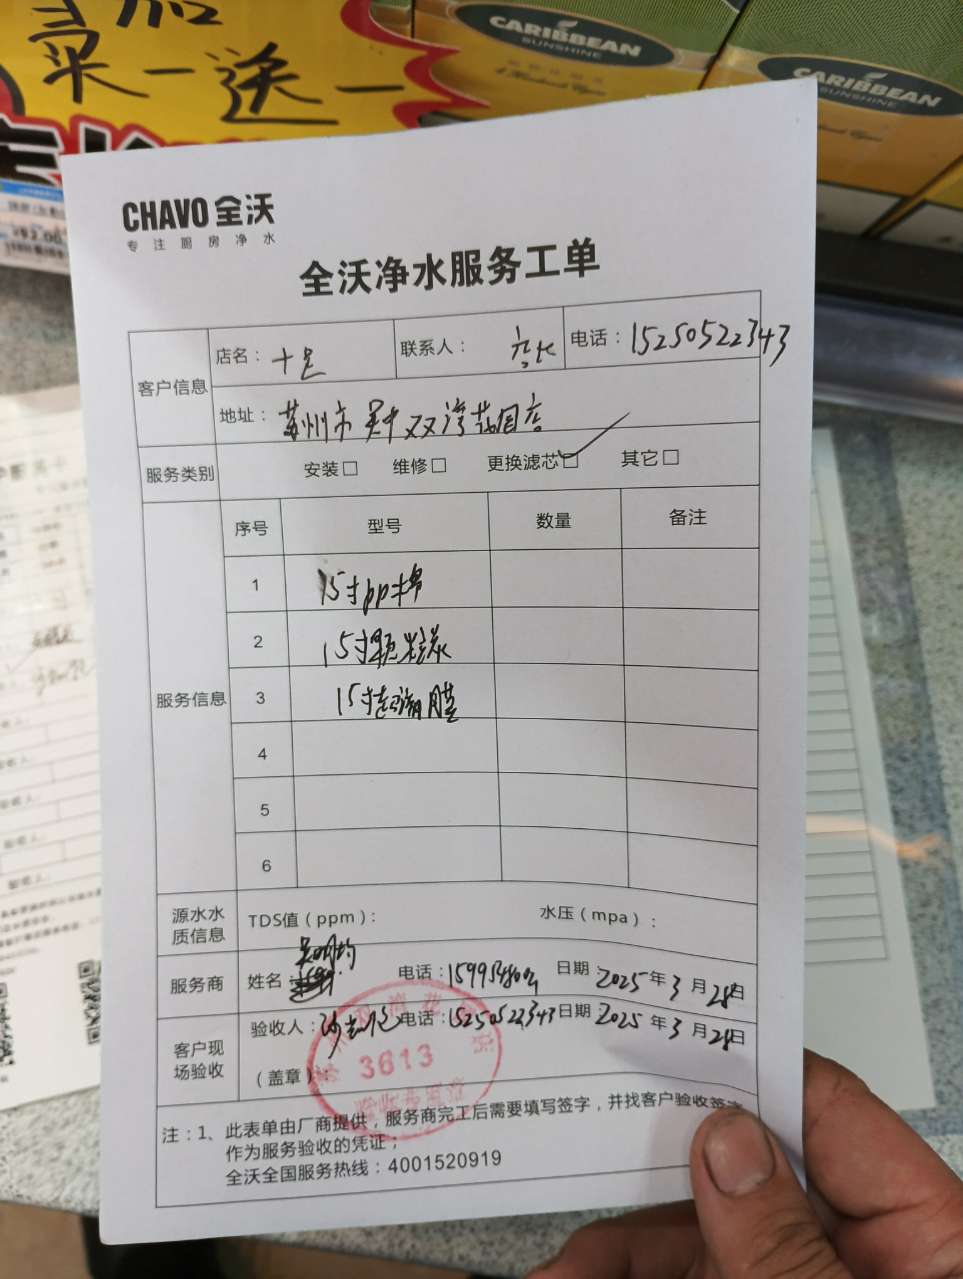 买一送一
CARIBBEAN
SUNSHINE
CARIBBEAN
SUNSHINE
CHAVO 全沃
专注厨房净水
全沃净水服务工单
客户信息
店名：十足
联系人：
电话：15250522343
地址：苏州市吴中双湾花园店
服务类别
安装□ 维修□ 更换滤芯□ 其它□
服务信息
序号 型号 数量 备注
1 15寸pp棉
2 15寸颗粒炭
3 15寸超滤膜
4
5
6
源水水质信息
TDS值（ppm）： 水压（mpa）：
服务商
姓名： 电话： 日期：2025年3月28日
客户现场验收
验收人： 电话：15250522343 日期：2025年3月28日
（盖章）
3613
验收专用章
注：1、此表单由厂商提供，服务商完工后需要填写签字，并找客户验收签字
作为服务验收的凭证；
全沃全国服务热线：4001520919